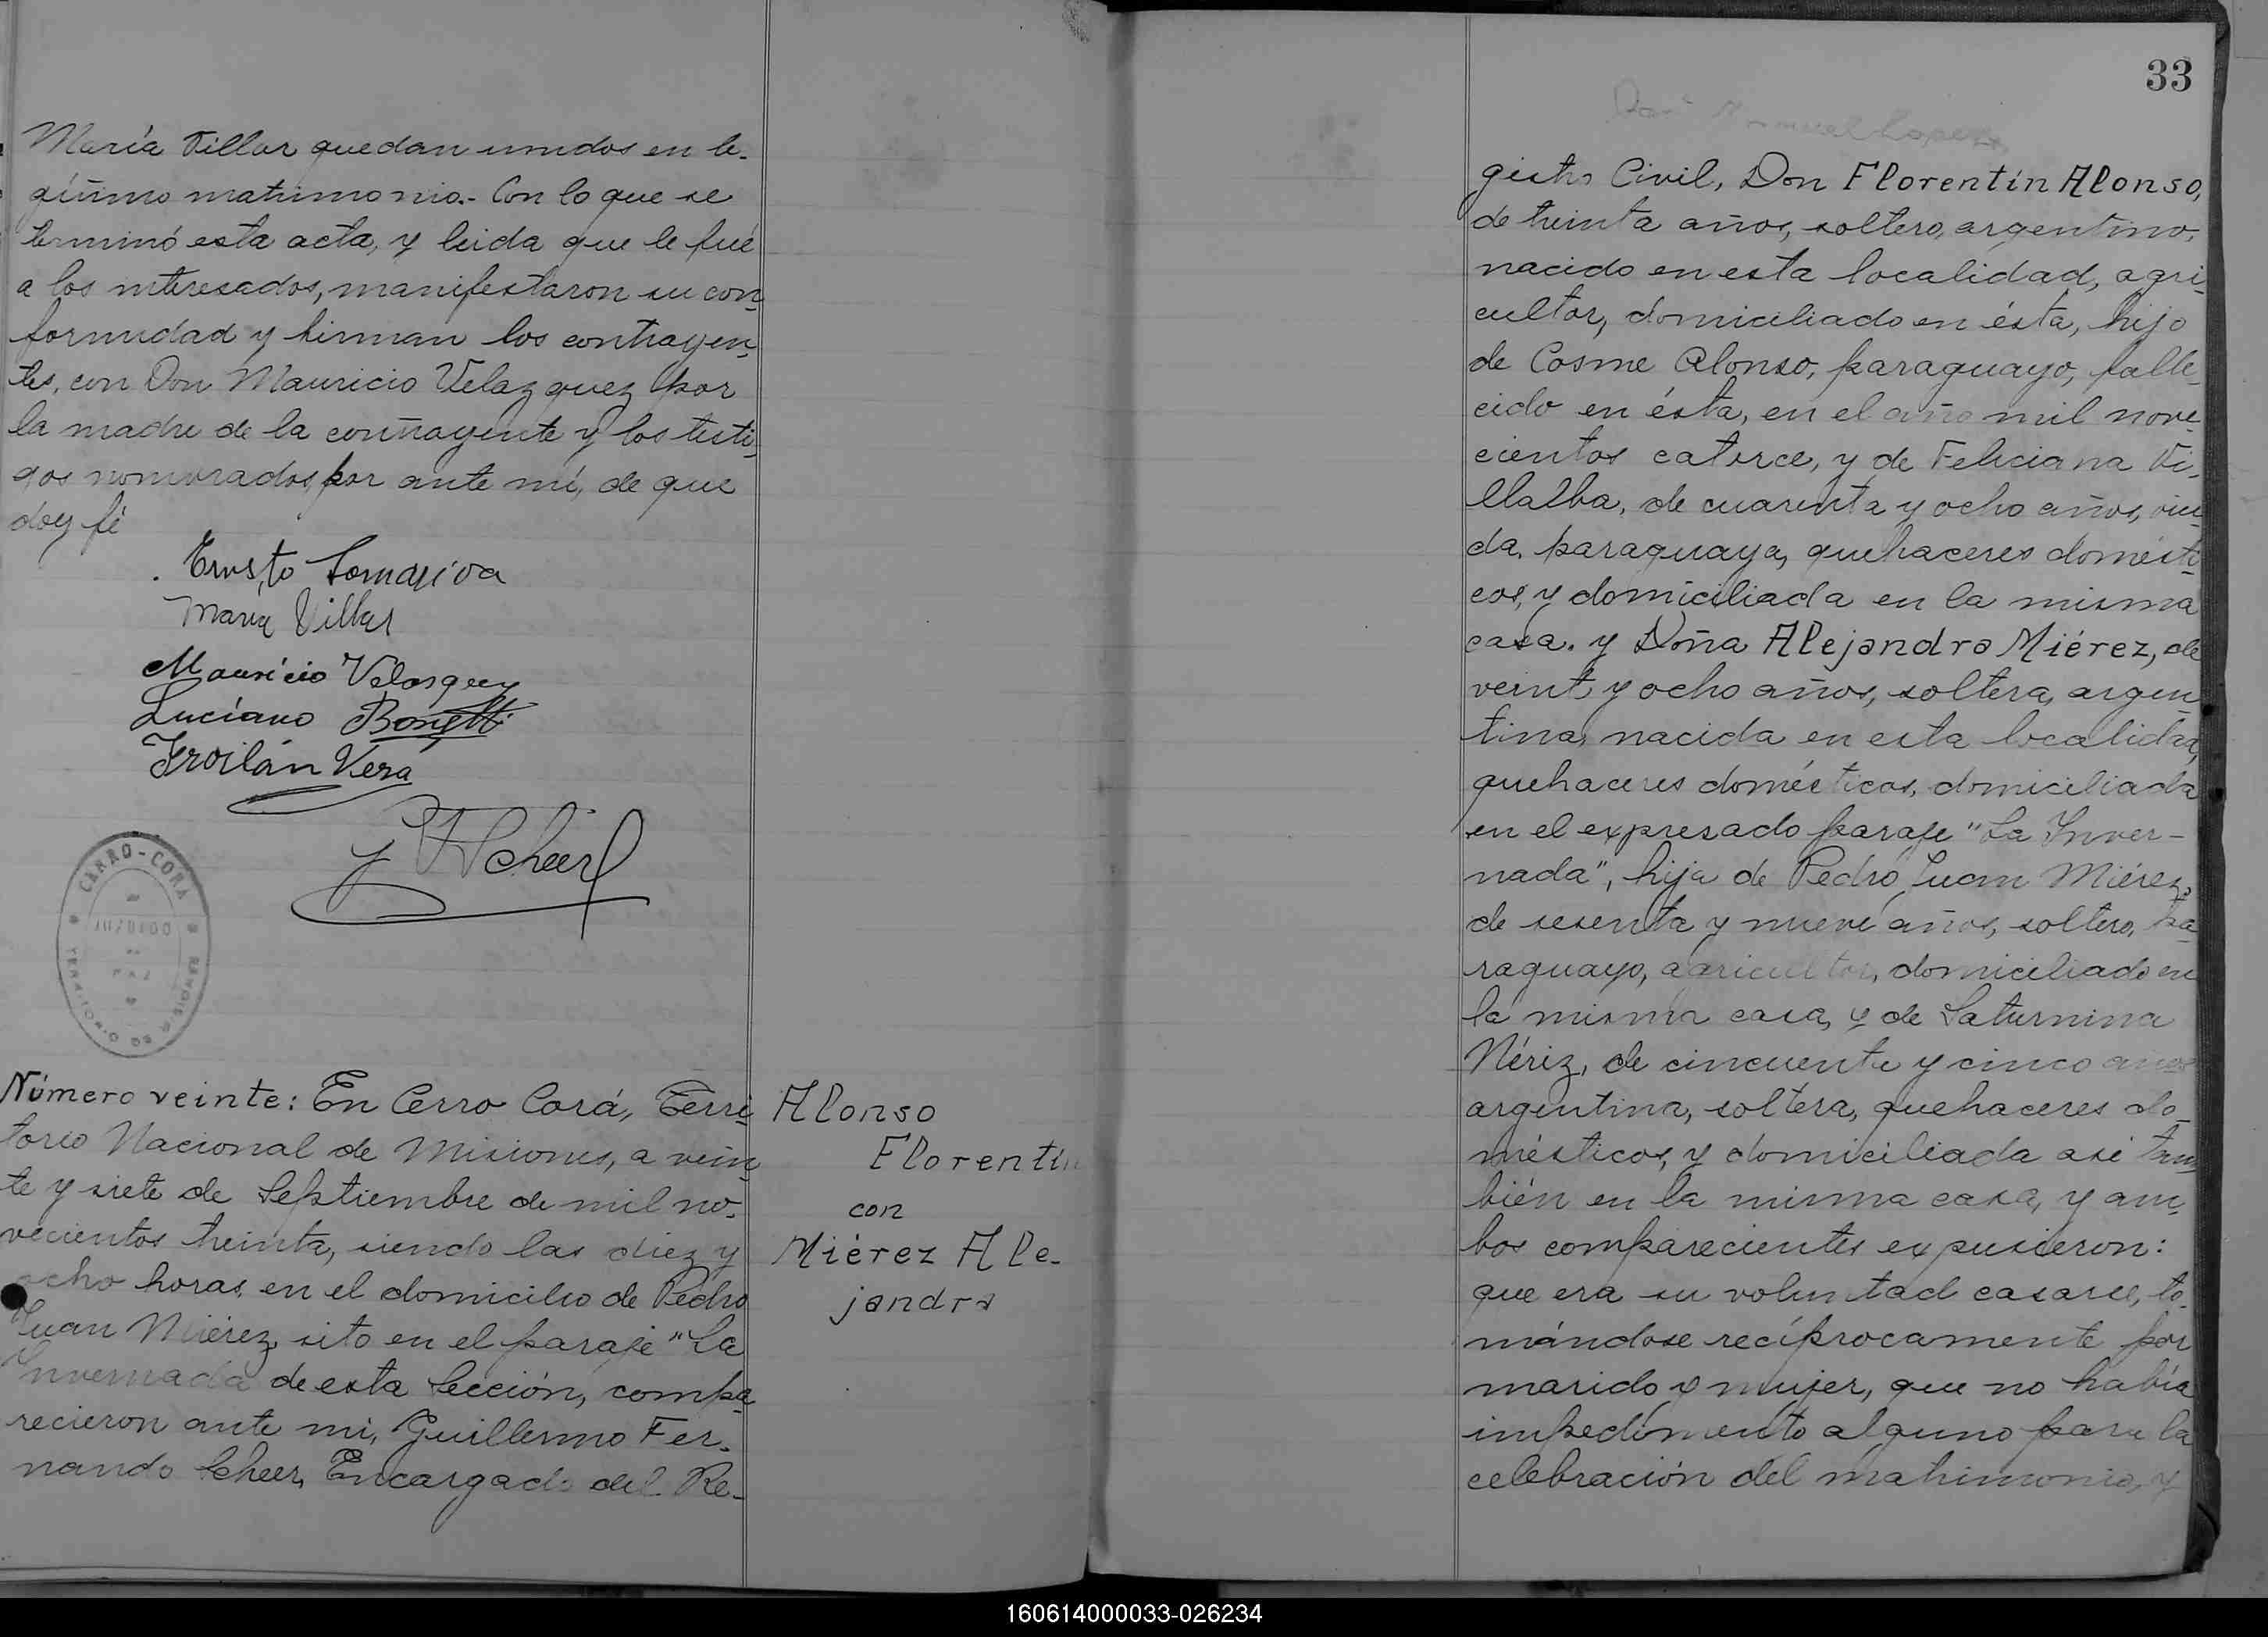 María Villar quedan unidos en le-
gítimo matrimonio.- Con lo que se
terminó esta acta, y leida que le fué
a los interesados, manifestaron su con-
formidad y firman los contrayen-
tes, con Don Mauricio Velazquez por
la madre de la contrayente y los testi-
gos nombrados por ante mí, de que
doy fé
Ernesto Somariva
María Villar
Mauricio Velasquez
Luciano Bonetti
Froilán Vera
Scheer
CERRO-CORA
JUZGADO
DE
PAZ
TERRITORIO DE MISIONES
Número veinte: En Cerro Corá, Terri-
torio Nacional de Misiones, a vein-
te y siete de Septiembre de mil no-
vecientos treinta, siendo las diez y
ocho horas, en el domicilio de Pedro
Juan Miérez, sito en el paraje "La
Invernada de esta Sección, compa-
recieron ante mi, Guillermo Fer-
nando Scheer, Encargado del Re-
Alonso
Florentín
con
Miérez Ale-
jandra
33
gistro Civil, Don Florentín Alonso,
de treinta años, soltero, argentino,
nacido en esta localidad, agri-
cultor, domiciliado en ésta, hijo
de Cosme Alonso, paraguayo, falle-
cido en ésta, en el año mil nove-
cientos catorce, y de Feliciana Vi-
llalba, de cuarenta y ocho años, viu-
da, paraguaya, quehaceres domésti-
cos, y domiciliada en la misma
casa. y Doña Alejandra Miérez, de
veint y ocho años, soltera, argen-
tina, nacida en esta localidad,
quehaceres domésticos, domiciliada
en el expresado paraje "La Inver-
nada", hija de Pedro Juan Miérez,
de sesenta y nueve años, soltero, pa-
raguayo, agricultor, domiciliado en
la misma casa, y de Saturnina
Nériz, de cincuenta y cinco años
argentina, soltera, quehaceres do-
mésticos, y domiciliada asi tam-
bién en la misma casa, y am-
bos comparecientes expusieron:
que era su voluntad casarse, to-
mándose recíprocamente por
marido y mujer, que no había
impedimento alguno para la
celebración del matrimonio, y
160614000033-026234